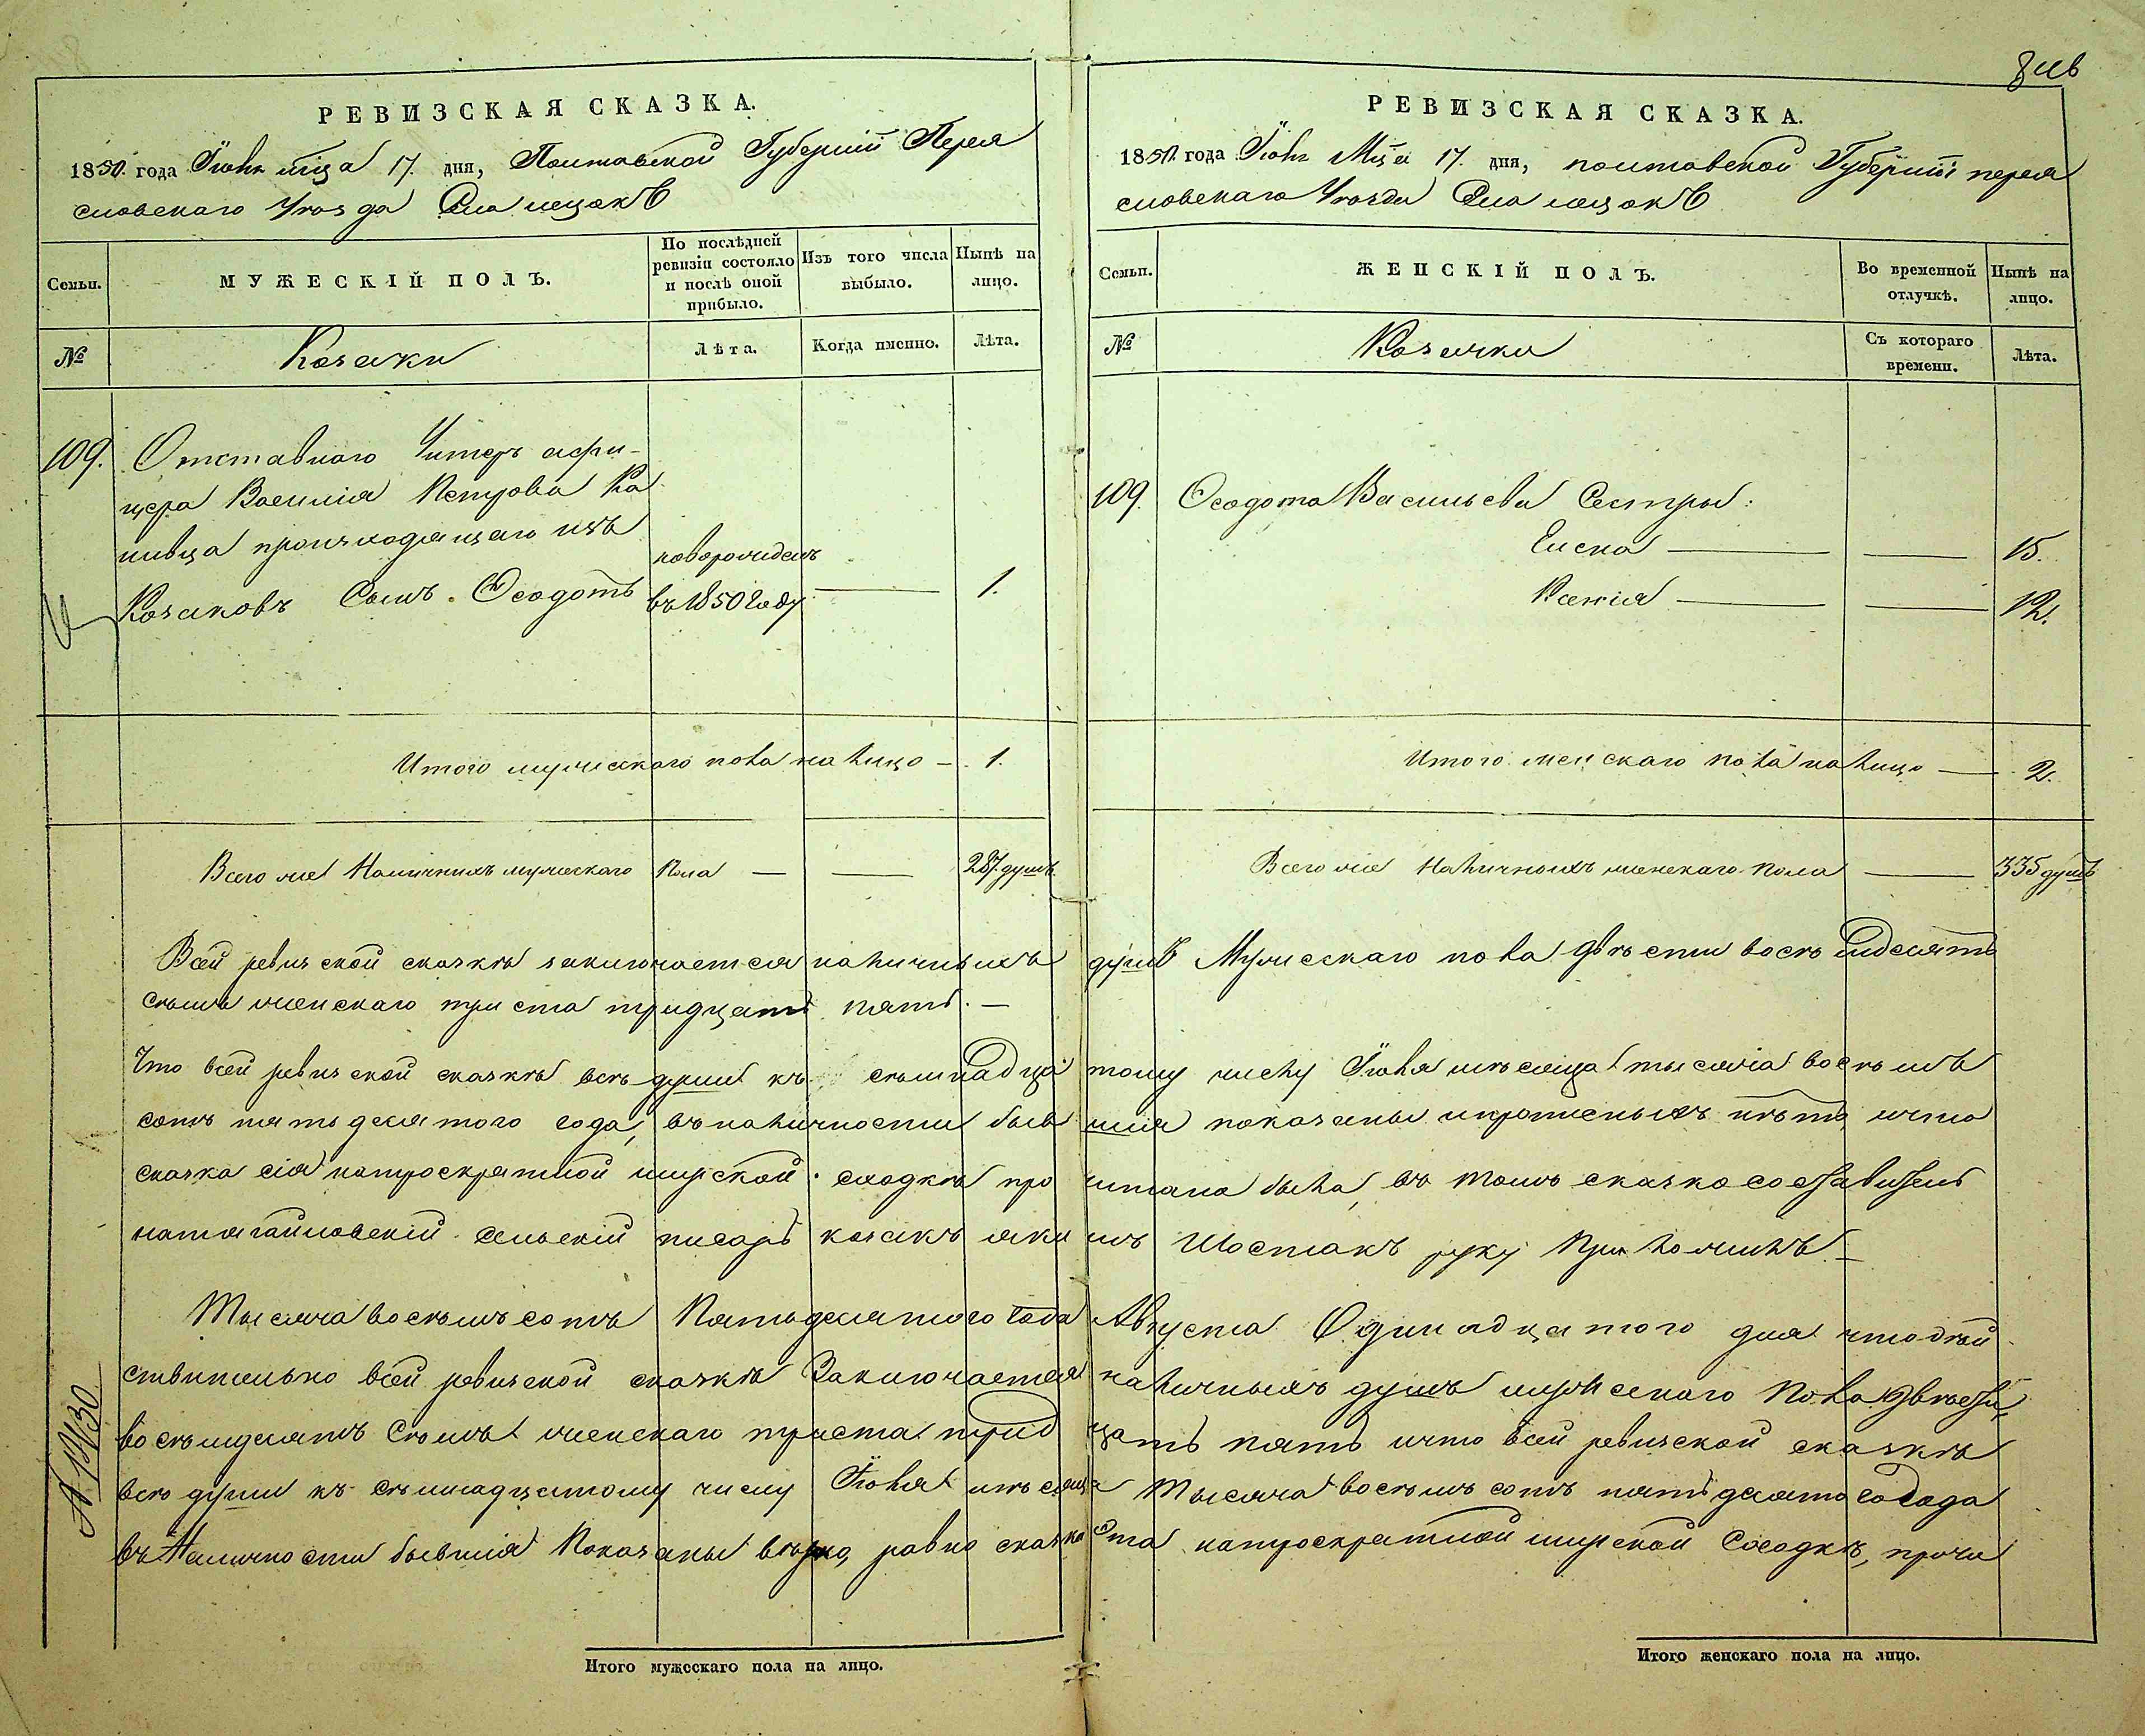 РЕВИЗСКАЯ СКАЗКА.
1850. года Іюня мца 17. дня, Полтавской Губерніи Перея
словскаго Уезда
Семьи.
МУЖЕСКІЙ ПОЛЪ.
По послѣдней ревизіи состояло и послѣ оной прибыло.
Изъ того числа выбыло.
Нынѣ на лицо.
№
Козаки
Лѣта.
Когда именно.
Лѣта.
109. Отставнаго Унтеръ афи-
цера Василія Петрова Ка
нивца происходящаго изъ
Козаковъ Сынъ. Ѳеодотъ
новорожденъ
въ 1850 году
1.
Итого мужескаго пола на лицо — 1.
Всего же Наличныхъ мужескаго Пола — — 287 душъ
РЕВИЗСКАЯ СКАЗКА.
1850. года Іюня Мца 17. дня, полтавской Губерніи перея
словскаго Уезда
Семьи.
ЖЕНСКІЙ ПОЛЪ.
Во временной отлучкѣ.
Нынѣ на лицо.
№
Козачки
Съ котораго времени.
Лѣта.
109. Ѳеодота Васильева Сестры:
Елена — — 15.
Ксенія — — 12.
Итого женскаго пола на лицо — 2.
Всего же наличныхъ женскаго пола — 335 душъ
Всей ревизской сказкѣ заключается наличныхъ душъ Мужескаго пола двѣсти восемъдесятъ
семь женскаго триста тридцать пять. —
Что всей ревизской сказкѣ всѣ души къ семнадцатому числу Іюня мѣсяца тысяча восемь
сотъ пятьдесятого года, въ наличности бывшія показаны и прописныхъ нѣтъ, и что
сказка сія на троекратной мирской сходкѣ прочитана была, въ томъ сказкосоставитель
натягайловскій сельскій писарь козакъ якимъ Шостакъ руку Приложилъ. —
Тысяча восемь сотъ Пятьдесятого года Августа Одинадцатого дня что дѣй
ствительно всей ревизской сказкѣ Заключается наличныхъ душъ мужескаго Пола двѣсти,
восемдесятъ Семь женскаго триста тридцать пять и что всей ревизской сказкѣ
всѣ души къ семнадцатому числу Іюня мѣсяца Тысяча восемь сотъ пятьдесятого года
въ Наличности бывшія Показаны вѣрно, равно сказка эта на троекратной мирской Сходкѣ, прочи
Итого мужескаго пола на лицо.
Итого женскаго пола на лицо.